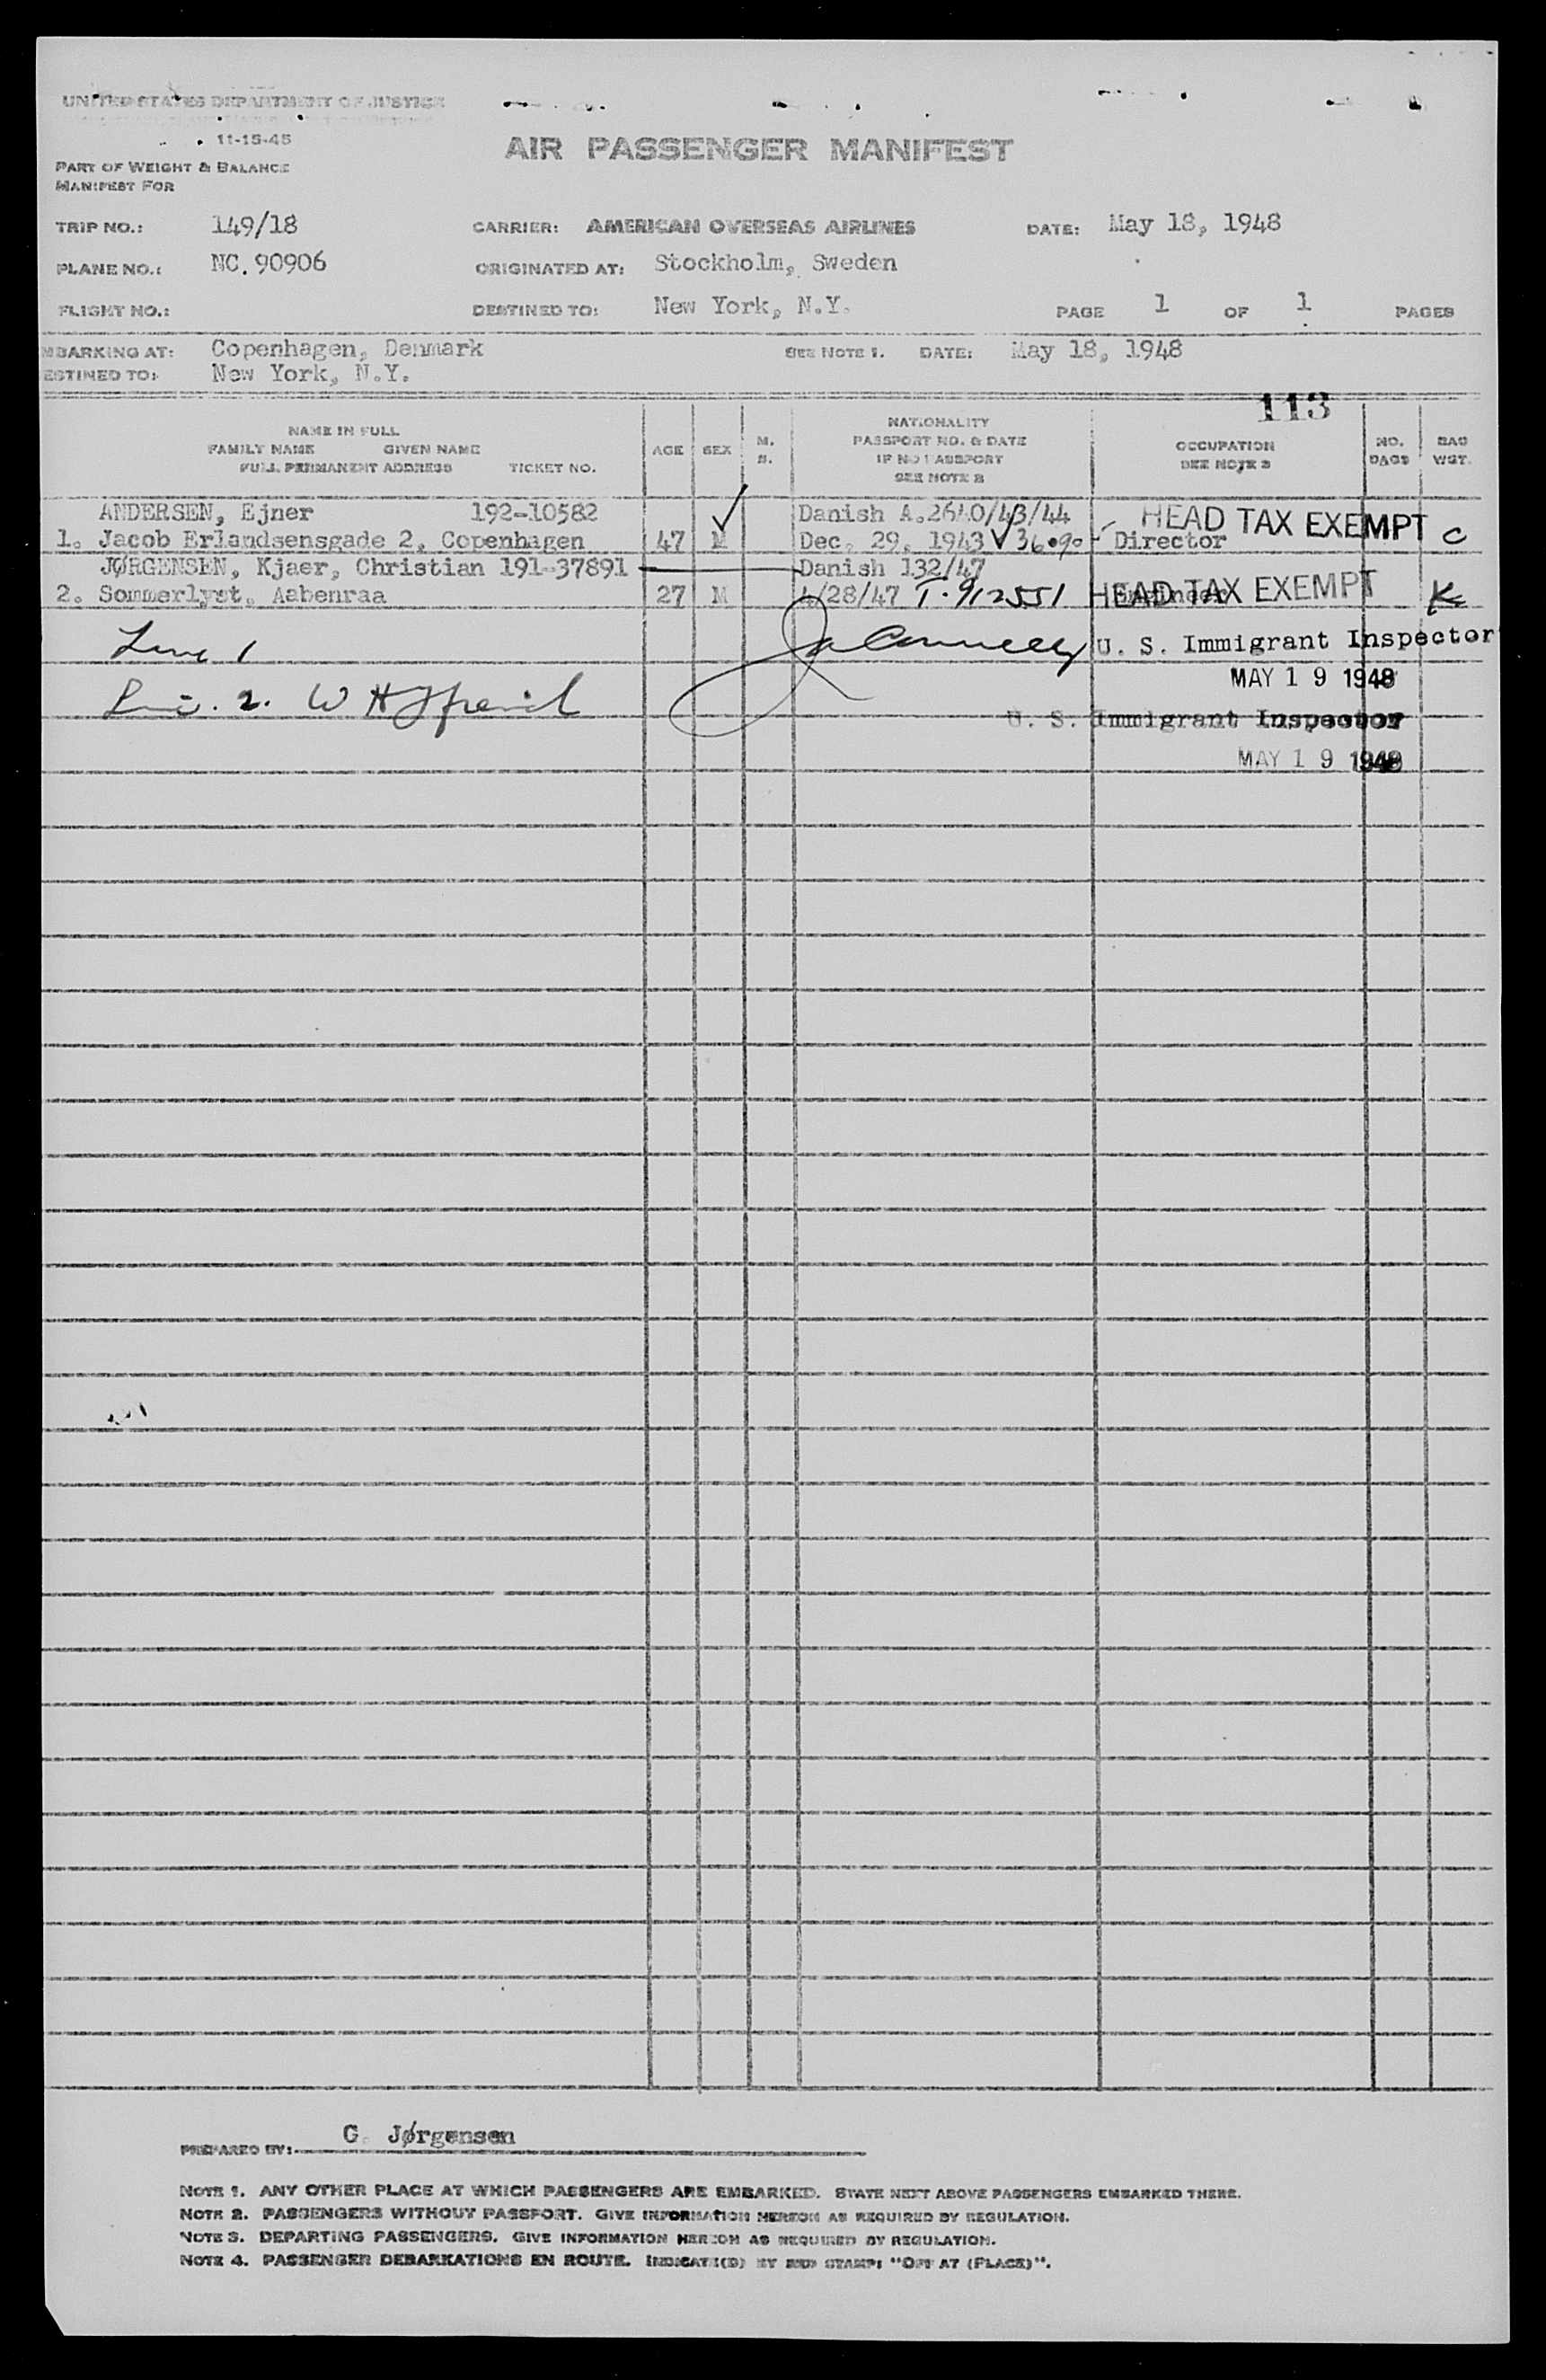 UNITED STATES DEPARTMENT OF JUSTICE
11-15-45
AIR PASSENGER MANIFEST
PART OF WEIGHT & BALANCE
MANIFEST FOR
TRIP NO.: 149/18 CARRIER: AMERICAN OVERSEAS AIRLINES DATE: May 18, 1948
PLANE NO.: NC. 90906 ORIGINATED AT: Stockholm, Sweden
FLIGHT NO.: DESTINED TO: New York, N.Y. PAGE 1 OF 1 PAGES
MBARKING AT: Copenhagen, Denmark SEE NOTE 1. DATE: May 18, 1948
ESTINED TO: New York, N.Y.
113
NAME IN FULL
FAMILY NAME GIVEN NAME
FULL PERMANENT ADDRESS TICKET NO.
AGE SEX M. S.
NATIONALITY
PASSPORT NO. & DATE
IF NO PASSPORT
SEE NOTE 2
OCCUPATION
SEE NOTE 3
NO. BAGS
BAG WGT.
ANDERSEN, Ejner 192-10582 Danish A.2640/43/44 HEAD TAX EXEMPT
1. Jacob Erlandsensgade 2, Copenhagen 47 M Dec. 29, 1943 V 36090 Director C
JØRGENSEN, Kjaer, Christian 191-37891 Danish 132/47
2. Sommerlyst, Aabenraa 27 M 4/28/47 T-912551 HEAD TAX EXEMPT K
Line 1 U. S. Immigrant Inspector
MAY 19 1948
2. W H U. S. Immigrant Inspector
MAY 19 1948
PREPARED BY: C. Jørgensen
NOTE 1. ANY OTHER PLACE AT WHICH PASSENGERS ARE EMBARKED. STATE NEXT ABOVE PASSENGERS EMBARKED THERE.
NOTE 2. PASSENGERS WITHOUT PASSPORT. GIVE INFORMATION HEREON AS REQUIRED BY REGULATION.
NOTE 3. DEPARTING PASSENGERS. GIVE INFORMATION HEREON AS REQUIRED BY REGULATION.
NOTE 4. PASSENGER DEBARKATIONS EN ROUTE. INDICATE(D) BY RED STAMP: "OFF AT (PLACE)".